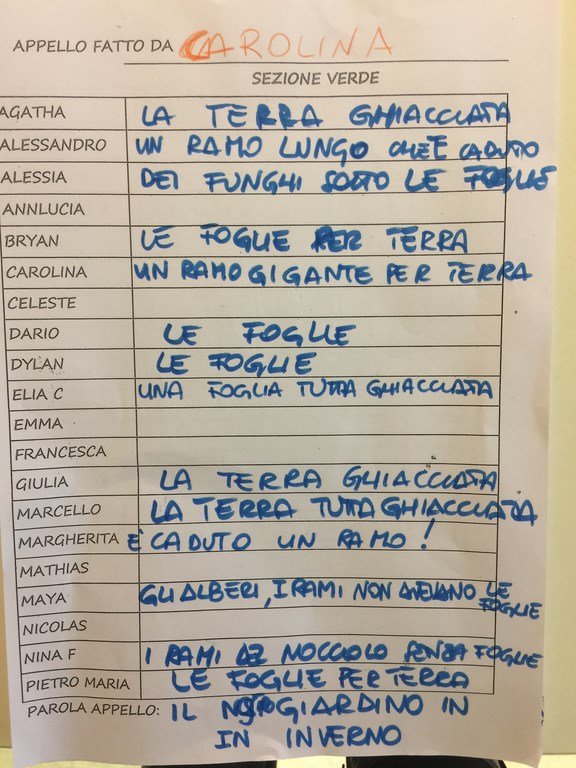 APPELLO FATTO DA CAROLINA
SEZIONE VERDE
AGATHA LA TERRA GHIACCIATA
ALESSANDRO UN RAMO LUNGO CHE È CADUTO
ALESSIA DEI FUNGHI SOTTO LE FOGLIE
ANNLUCIA
BRYAN LE FOGLIE PER TERRA
CAROLINA UN RAMO GIGANTE PER TERRA
CELESTE
DARIO LE FOGLIE
DYLAN LE FOGLIE
ELIA C UNA FOGLIA TUTTA GHIACCIATA
EMMA
FRANCESCA
GIULIA LA TERRA GHIACCIATA
MARCELLO LA TERRA TUTTA GHIACCIATA
MARGHERITA È CADUTO UN RAMO!
MATHIAS
MAYA GLI ALBERI, I RAMI NON AVEVANO LE
FOGLIE
NICOLAS
NINA F I RAMI DI NOCCIOLO SENZA FOGLIE
PIETRO MARIA LE FOGLIE PER TERRA
PAROLA APPELLO: IL GIARDINO IN
IN INVERNO